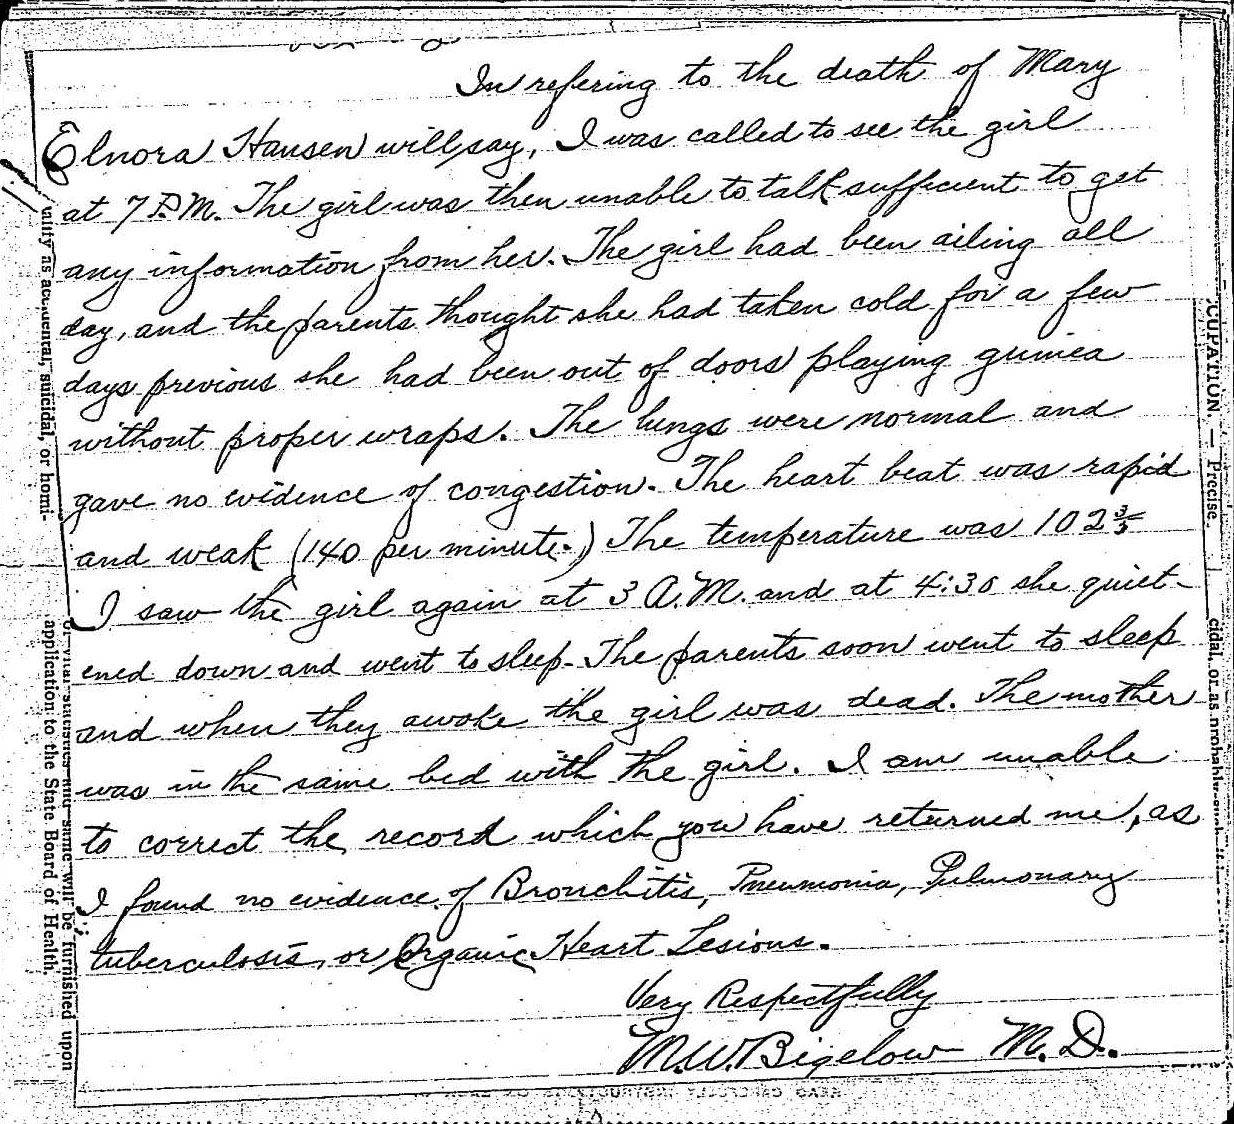 In refering to the death of Mary
Elnora Hansen will say, I was called to see the girl
at 7 P.M. The girl was then unable to talk sufficient to get
any information from her. The girl had been ailing all
day, and the parents thought she had taken cold for a few
days previous she had been out of doors playing guinea
without proper wraps. The lungs were normal and
gave no evidence of congestion. The heart beat was rapid
and weak (140 per minute.) The temperature was 102 3/5
I saw the girl again at 3 A.M. and at 4:30 she quiet-
ened down and went to sleep. The parents soon went to sleep
and when they awoke the girl was dead. The mother
was in the same bed with the girl. I am unable
to correct the record which you have returned me, as
I found no evidence of Bronchitis, Pneumonia, Pulmonary
tuberculosis, or Organic Heart Lesions.
Very Respectfully
M.W. Bigelow M.D.
suicidal, or homi-
application to the State Board of Health.
will be furnished upon
CUPATION. — Precise
cidal, or as probably